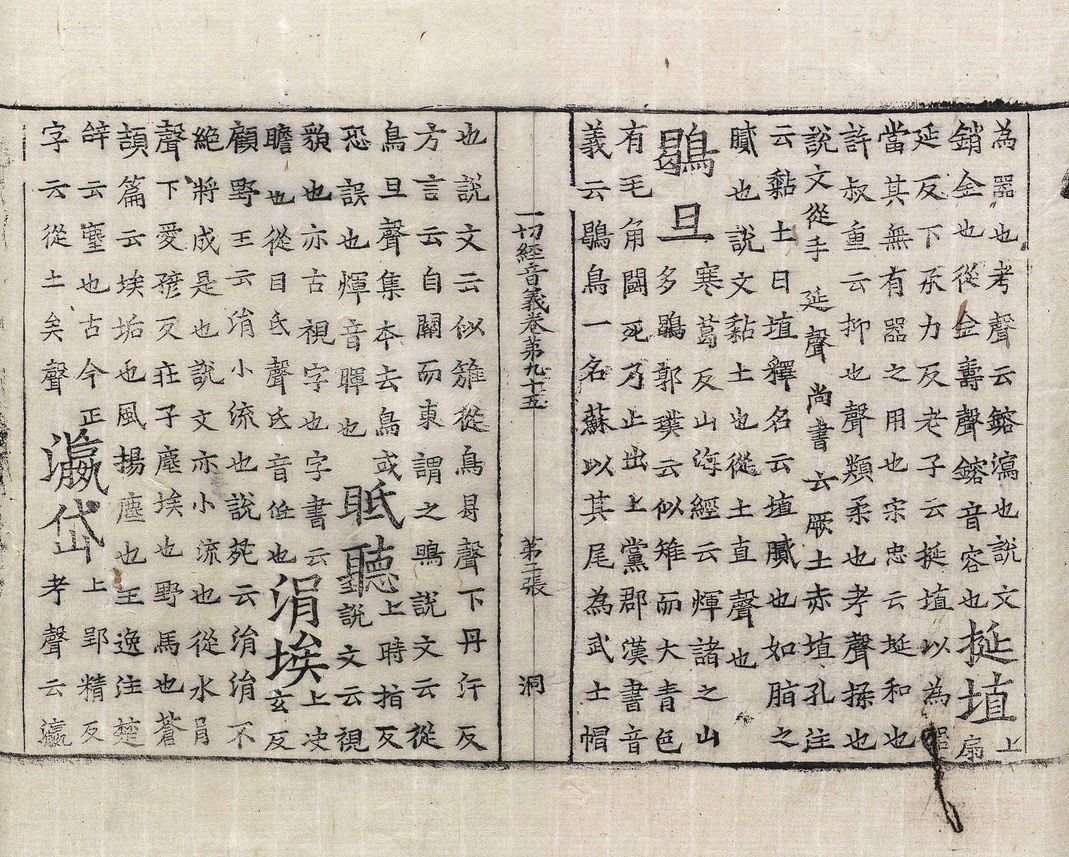 為器也考聲云鎔瀉也說文
銷金也從金壽聲鎔音容也
挻埴上扇
延反下承力反老子云挻埴以為器
當其無有器之用也宋忠云挻和也
許叔重云抑也聲類柔也考聲揉也
說文從手延聲尚書云厥土赤埴孔注
云黏土曰埴釋名云埴膩也如脂之
膩也說文黏土也從土直聲也
鶡旦
寒葛反山海經云煇諸之山
多鶡郭璞云似雉而大青色
有毛角鬪死乃止出上黨郡漢書音
義云鶡鳥一名蘇以其尾為武士帽
一切經音義卷第九十五 第二張 洞
也說文云似雉從鳥曷聲下丹汗反
方言云自關而東謂之鴠說文云從
鳥旦聲集本去鳥或
恐誤也煇音暉也
眂聽
上時指反
說文云視
貌也亦古視字也字書云
瞻也從目氐聲氐音低也
涓埃
上決
玄反
顧野王云涓小流也說苑云涓涓不
絕將成是也說文亦小流也從水肙
聲下愛反莊子塵埃也野馬也蒼
頡篇云埃垢也風揚塵也王逸注楚
辝云塵也古今正
字云從土矣聲
瀛岱
上郢精反
考聲云瀛